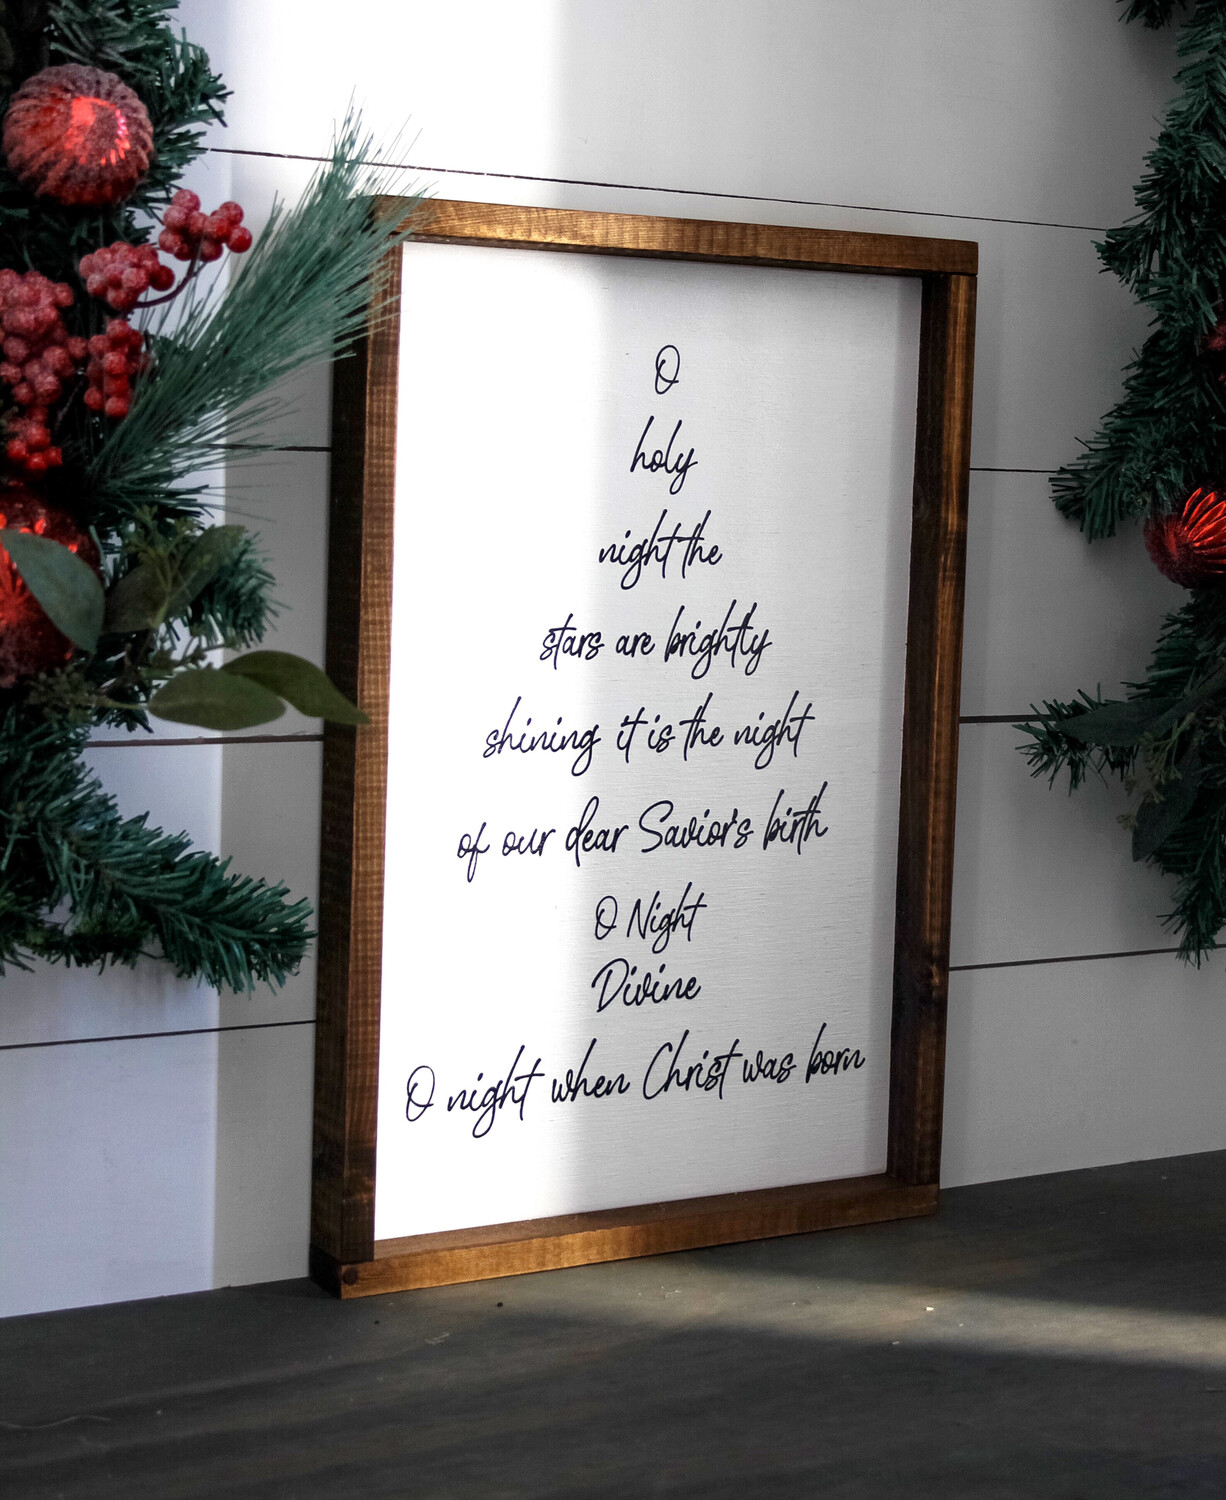 O
holy
night the
stars are brightly
shining it is the night
of our dear Savior's birth
O Night
Divine
O night when Christ was born